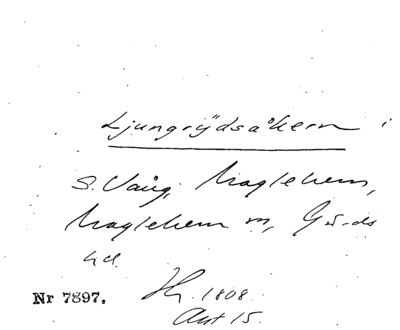 Ljungrydsåkern i
S. Vång, Maglehem,
Maglehem sn, Gärds
hd.
Nr 7897. Hy. 1808
Akt 15.